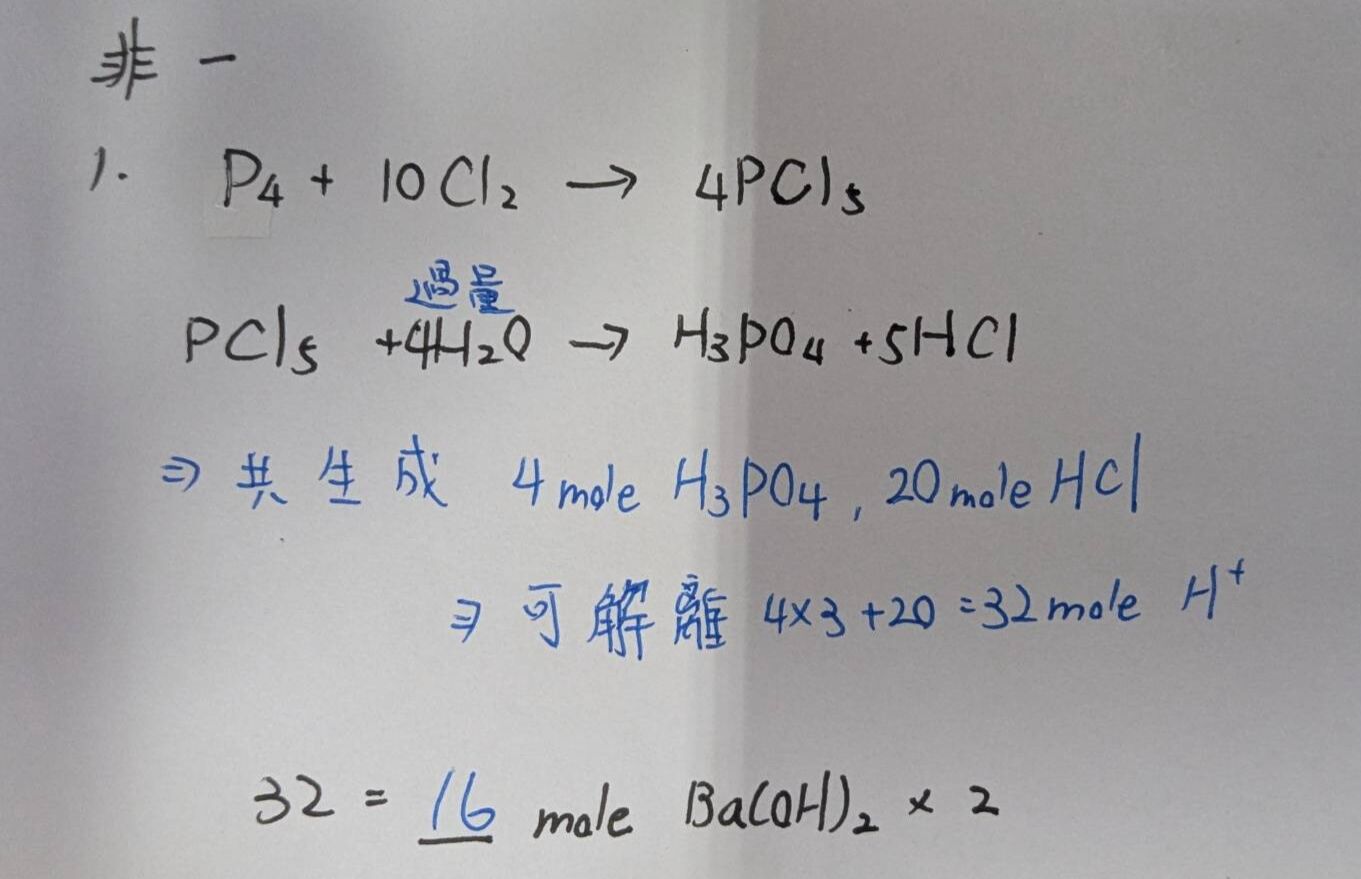 非 一
1. P₄ + 10Cl₂ → 4PCl₅
過量
PCl₅ +4H₂O → H₃PO₄ +5HCl
⇒ 共生成 4 mole H₃PO₄, 20 mole HCl
⇒ 可解離 4×3+20 =32 mole H⁺
32 = 16 mole Ba(OH)₂ × 2